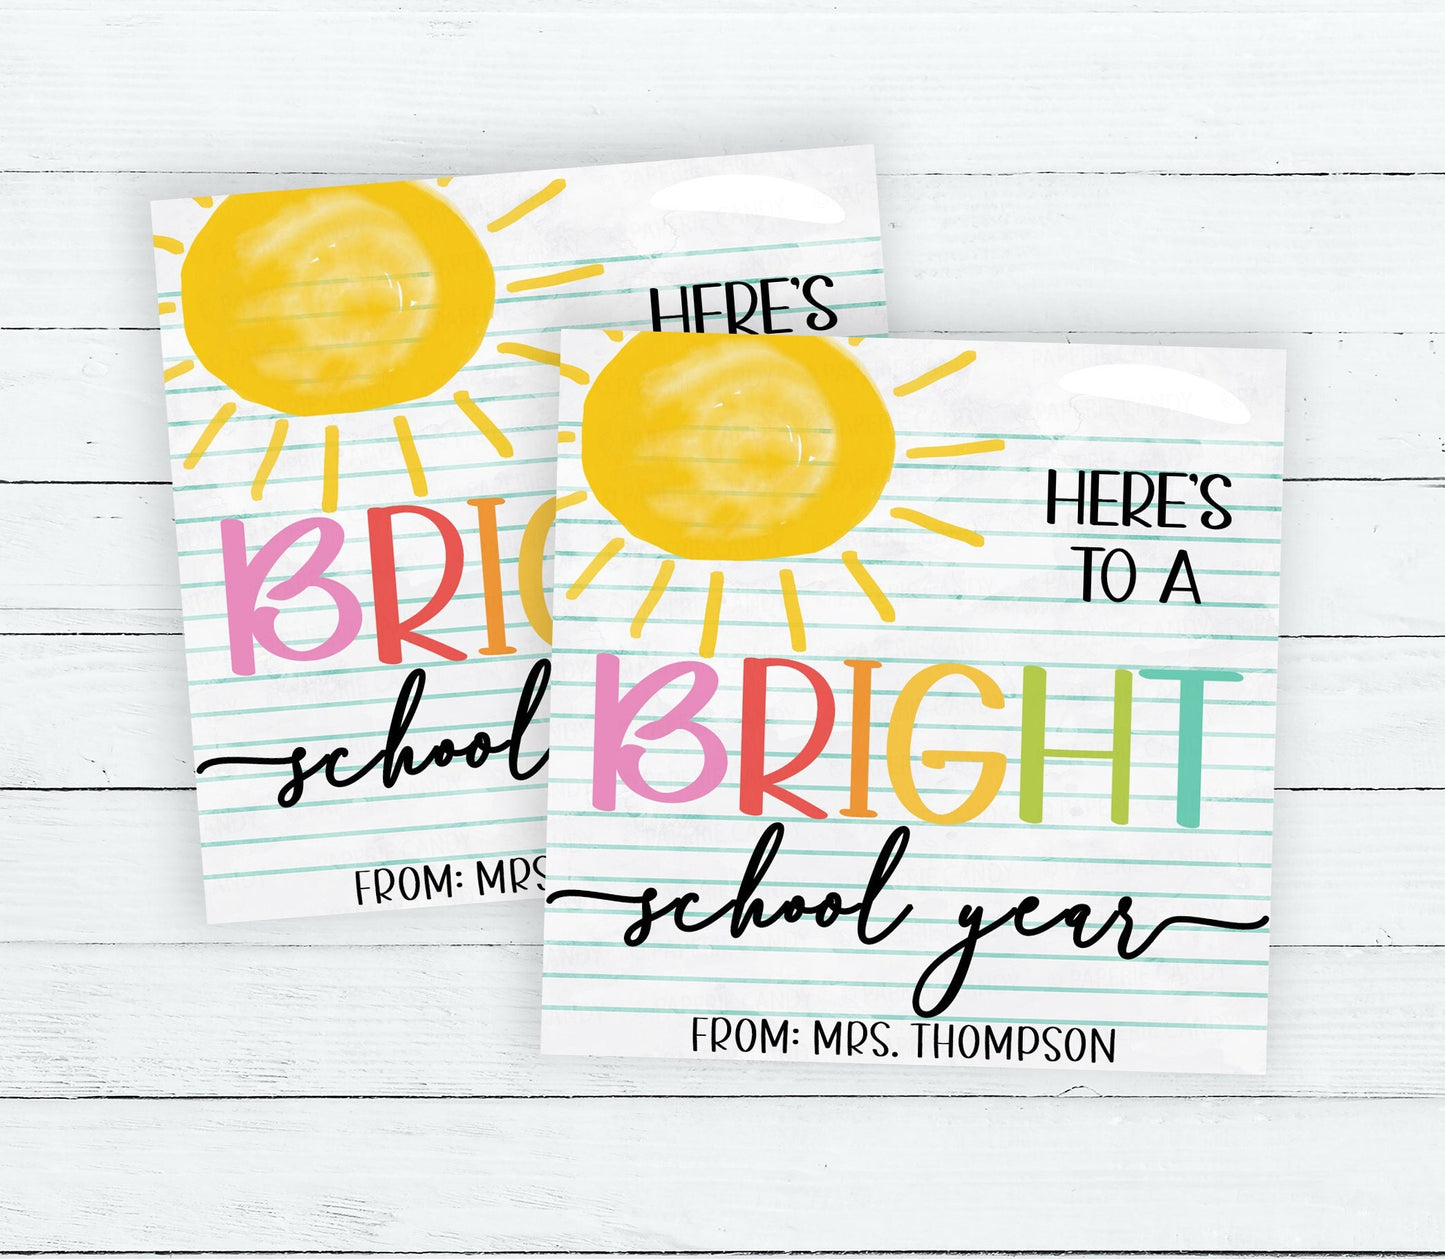 HERE'S
BRIG
school
FROM: MRS
HERE'S
TO A
BRIGHT
school year
FROM: MRS. THOMPSON